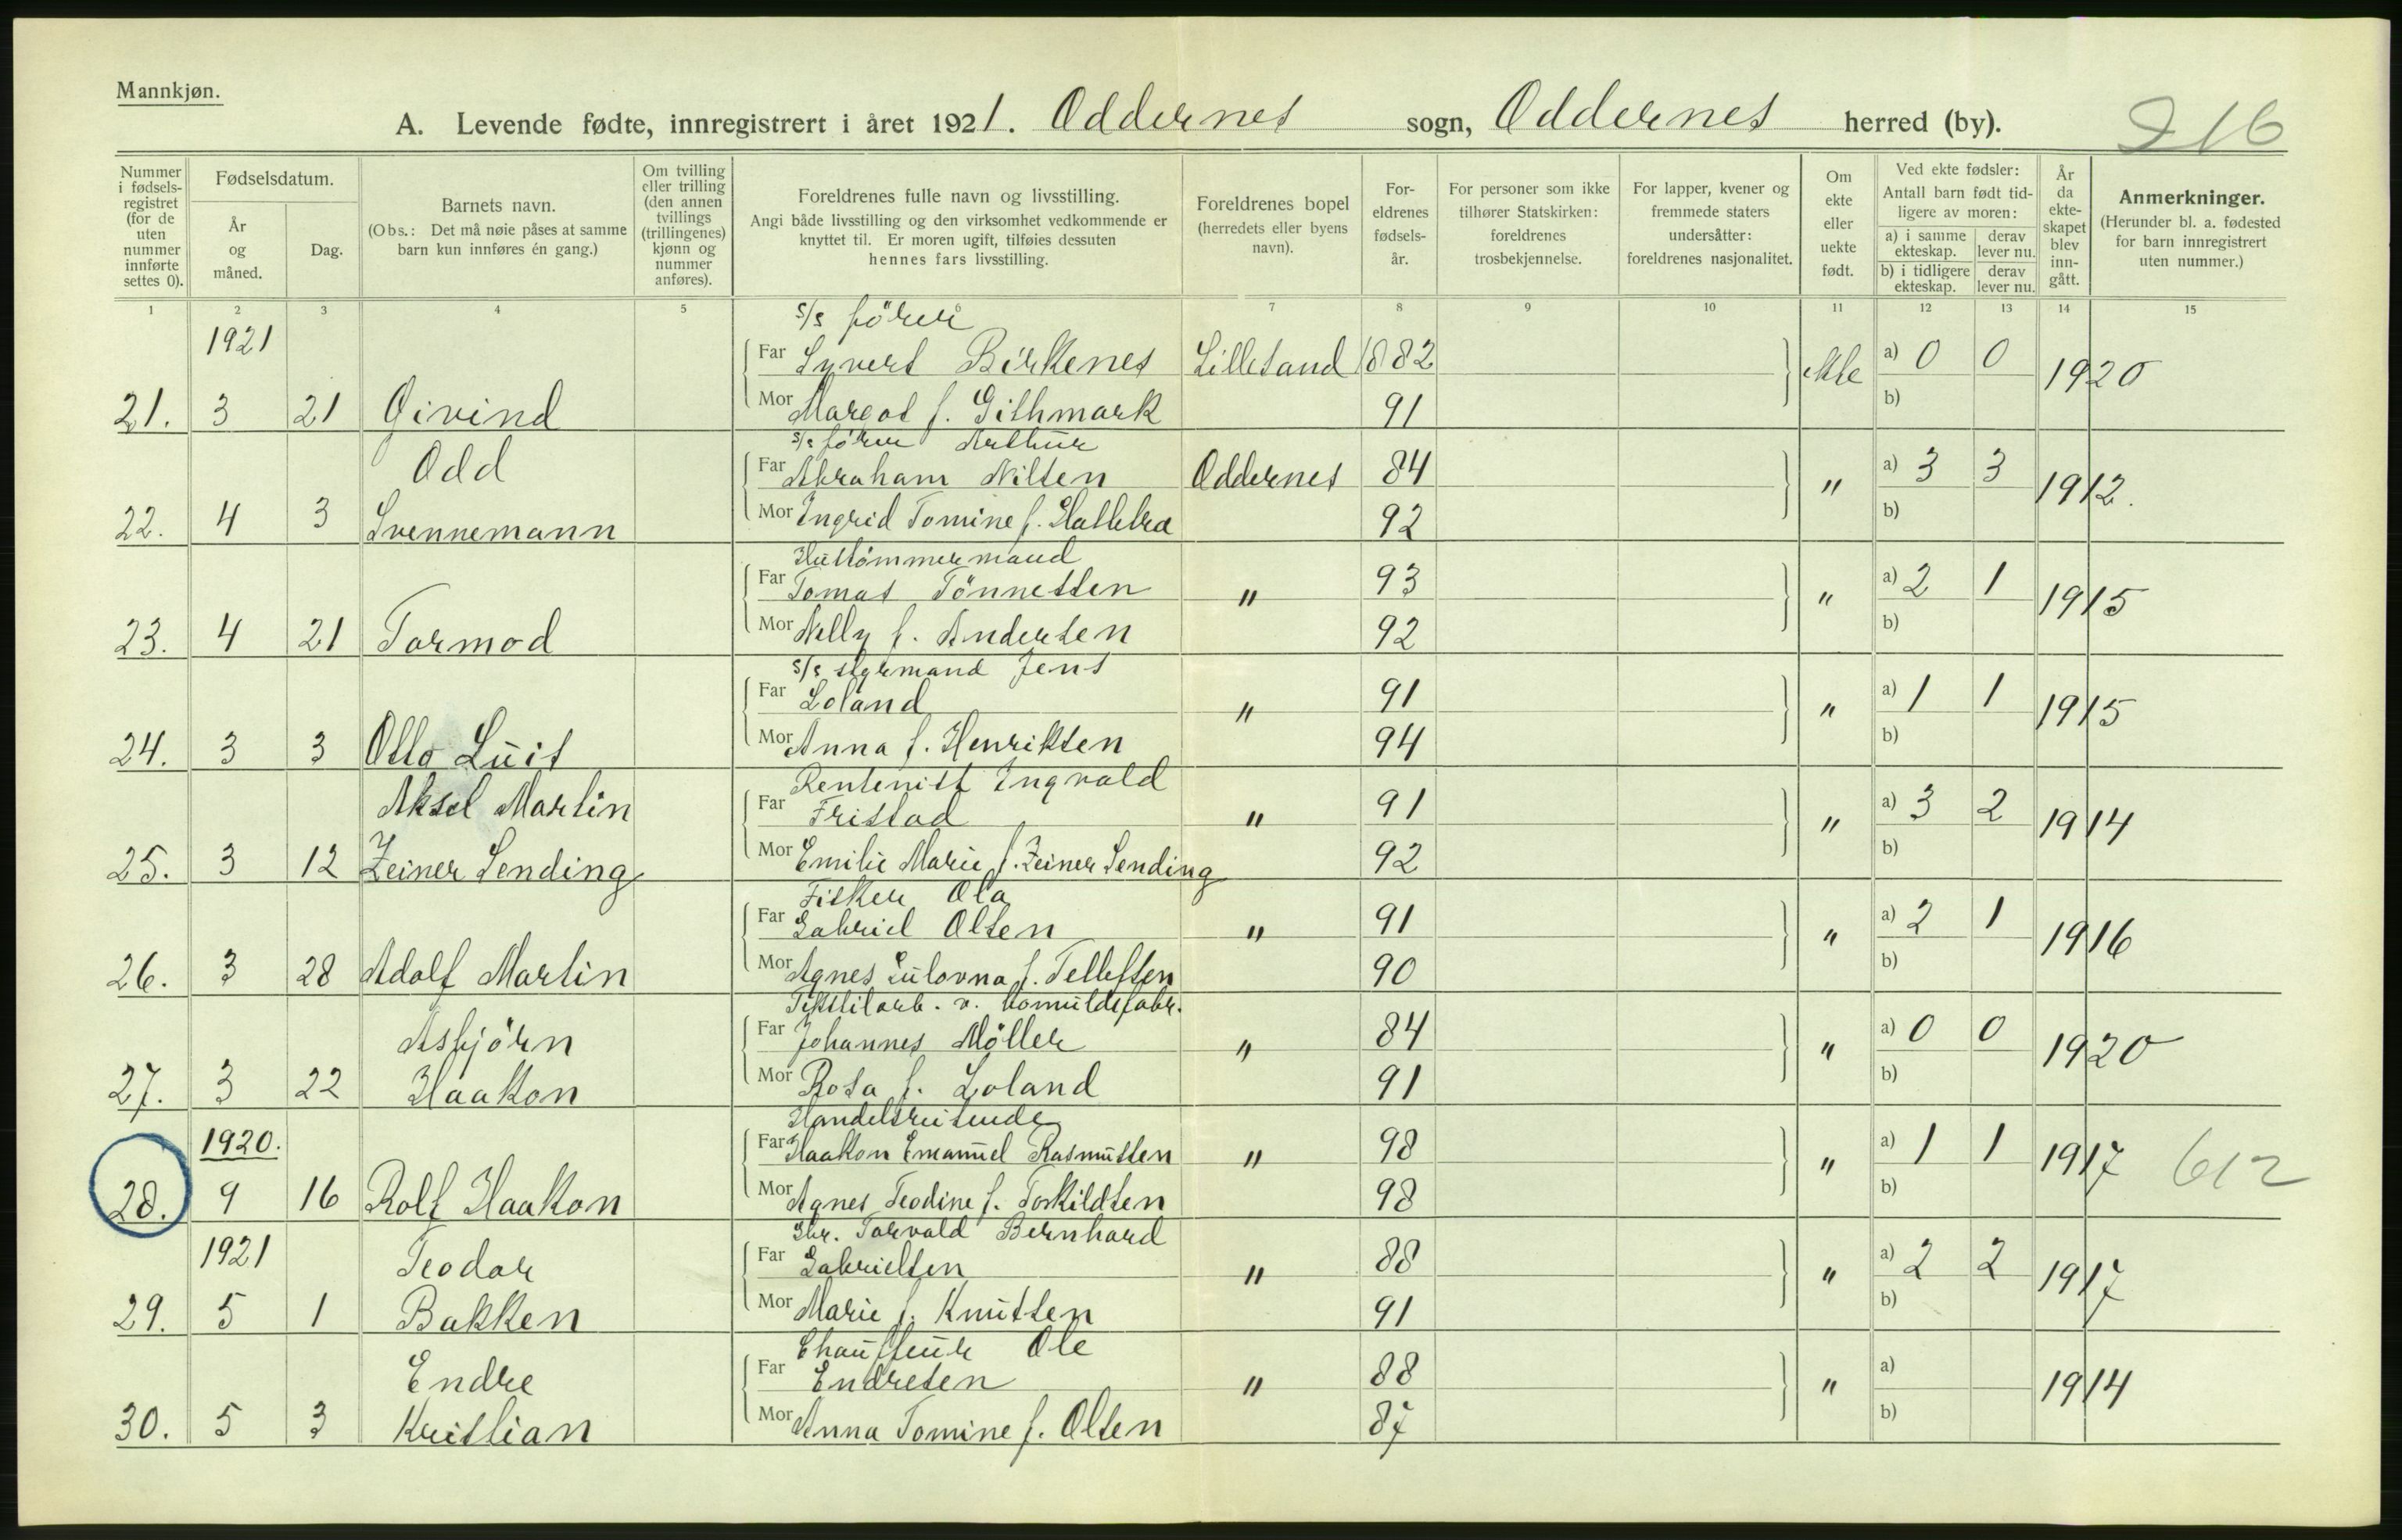 Mannkjøn.
A. Levende fødte, innregistrert i året 1921. Oddernes sogn, Oddernes herred (by). 216
Nummer i fødsels-registret (for de uten nummer innførte settes 0).
Fødselsdatum.
År og måned.
Dag.
Barnets navn.
(Obs.: Det må nøie påses at samme barn kun innføres én gang.)
Om tvilling eller trilling (den annen tvillings (trillingenes) kjønn og nummer anføres).
Foreldrenes fulle navn og livsstilling.
Angi både livsstilling og den virksomhet vedkommende er knyttet til. Er moren ugift, tilføies dessuten hennes fars livsstilling.
Foreldrenes bopel (herredets eller byens navn).
For-eldrenes fødsels-år.
For personer som ikke tilhører Statskirken: foreldrenes trosbekjennelse.
For lapper, kvener og fremmede staters undersåtter: foreldrenes nasjonalitet.
Om ekte eller uekte født.
Ved ekte fødsler: Antall barn født tid-ligere av moren:
a) i samme ekteskap. derav lever nu.
b) i tidligere ekteskap. derav lever nu.
År da ekte-skapet blev inn-gått.
Anmerkninger.
(Herunder bl. a. fødested for barn innregistrert uten nummer.)
1 2 3 4 5 7 8 9 10 11 12 13 14 15
1921 s/s förer
Far Syvert Birkenes Lillesand 1882 ekte a) 0 0 1920
21. 3 21 Öivind Mor Margot f. Githmark 91 b)
s/s förer Arthur
Odd Far Abraham Nilsen Oddernes 84 " a) 3 3 1912.
22. 4 3 Svennemann Mor Ingrid Tomine f. Hallebra 92 b)
Hustömmermand
Far Tomas Tönnessen " 93 " a) 2 1 1915
23. 4 21 Tormod Mor Nelly f. Andersen 92 b)
s/s styrmand Jens
Far Loland " 91 " a) 1 1 1915
24. 3 3 Otto Luis Mor Anna f. Henriksen 94 b)
Rentenist Ingvald
Aksel Martin Far Fristad " 91 " a) 3 2 1914
25. 3 12 Zeiner Sending Mor Emilie Marie f. Zeiner Sending 92 b)
Fisker Ola
Far Gabriel Olsen " 91 " a) 2 1 1916
26. 3 28 Adolf Martin Mor Agnes Lulovna f. Tellefsen 90 b)
Tekstilarb. v. bomuldsfabr.
Asbjörn Far Johannes Möller " 84 " a) 0 0 1920
27. 3 22 Haakon Mor Rosa f. Loland 91 b)
Handelsreisende
1920. Far Haakon Emanuel Rasmussen " 98 " a) 1 1 1917 612
28. 9 16 Rolf Haakon Mor Agnes Teodine f. Torkildsen 98 b)
Gbr. Torvald Bernhard
1921 Teodor Far Gabrielsen " 88 " a) 2 2 1917
29. 5 1 Bakken Mor Marie f. Knutsen 91 b)
Chauffeur Ole
Endre Far Endresen " 88 " a) 1914
30. 5 3 Kristian Mor Anna Tomine f. Olsen 87 b)